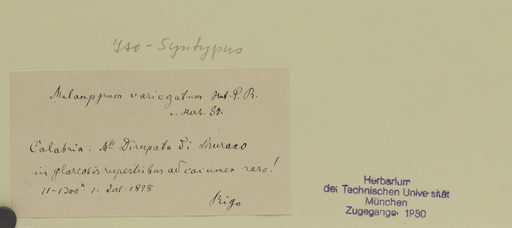 Iso-Syntypus
Melampyrum variegatum Hut. P. R.
Calabria. Mte Dirupata di Murano
in glareosis rupestribus ad cacumen raro!
11-1200m 1. Jul 1898
Rigo
Herbarium
der Technischen Universität
München
Zugegangen 1980